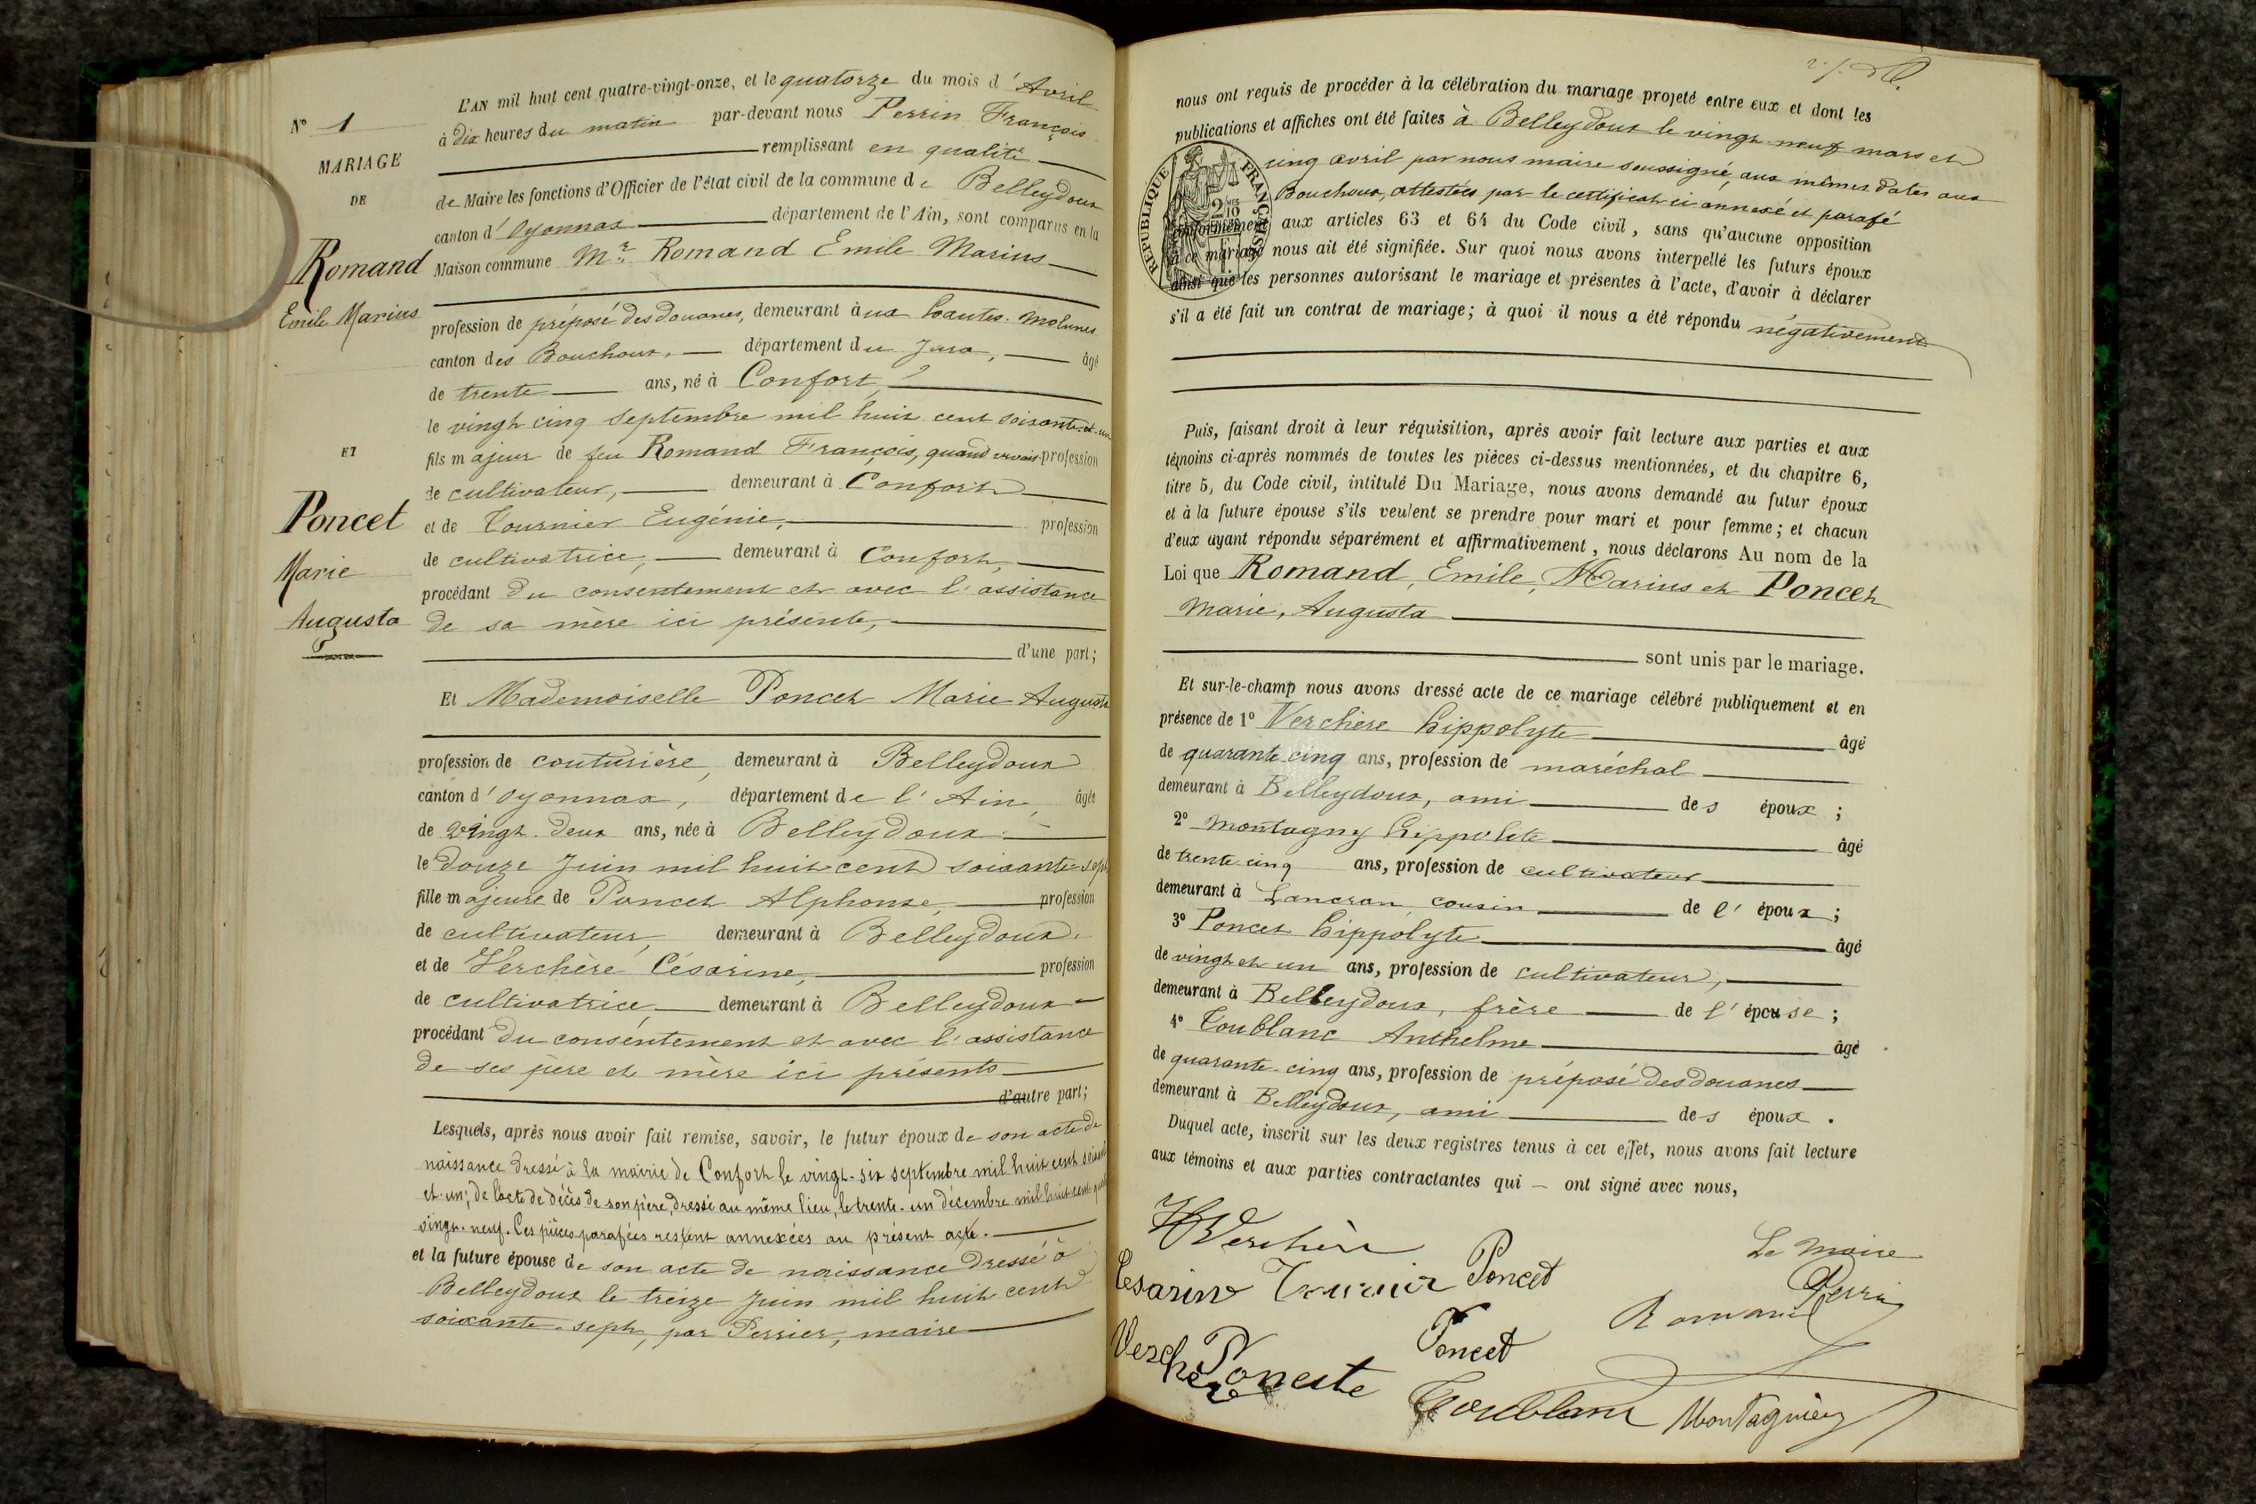 L'AN mil huit cent quatre-vingt-onze, et le quatorze du mois d'Avril
à dix heures du matin par-devant nous Perrin François
remplissant en qualité
de Maire les fonctions d'Officier de l'état civil de la commune de Belleydoux
canton d'Oyonnax département de l'Ain, sont comparus en la
Maison commune Mr. Romand Emile Marius
profession de préposé des douanes, demeurant aux hautes. Molunes
canton des Bouchoux, département du Jura, âgé
de trente ans, né à Confort,
le vingt cinq septembre mil huit cent soixante-et-un
fils majeur de feu Romand François, quand vivait profession
de cultivateur, demeurant à Confort
et de Tournier Eugénie, profession
de cultivatrice, demeurant à Confort,
procédant du consentement et avec l'assistance
de sa mère ici présente,
d'une part;
Et Mademoiselle Poncet Marie Augusta
profession de couturière, demeurant à Belleydoux
canton d'Oyonnax, département de l'Ain, âgée
de vingt-deux ans, née à Belleydoux
le douze Juin mil huit cent soixante-sept
fille majeure de Poncet Alphonse, profession
de cultivateur, demeurant à Belleydoux.
et de Verchère Césarine, profession
de cultivatrice, demeurant à Belleydoux
procédant du consentement et avec l'assistance
de ses père et mère ici présents
d'autre part;
Lesquels, après nous avoir fait remise, savoir, le futur époux de son acte de
naissance dressé à la mairie de Confort le vingt-six septembre mil huit cent soixante
et-un; de l'acte de décès de son père, dressé au même lieu, le trente-un décembre mil huit cent quatre
vingt-neuf. Ces pièces parafées restent annexées au présent acte.
et la future épouse de son acte de naissance dressé à
Belleydoux le treize Juin mil huit cent
soixante-sept, par Perrier, maire
N° 1
MARIAGE
DE
Romand
Emile Marius
ET
Poncet
Marie
Augusta
nous ont requis de procéder à la célébration du mariage projeté entre eux et dont les
publications et affiches ont été faites à Belleydoux le vingt-neuf mars et
cinq avril par nous maire soussigné, aux mêmes dates aux
Bouchoux, attestées par le certificat ci annexé et parafé
conformément aux articles 63 et 64 du Code civil, sans qu'aucune opposition
à ce mariage nous ait été signifiée. Sur quoi nous avons interpellé les futurs époux
ainsi que les personnes autorisant le mariage et présentes à l'acte, d'avoir à déclarer
s'il a été fait un contrat de mariage; à quoi il nous a été répondu négativement
RÉPUBLIQUE FRANÇAISE
Puis, faisant droit à leur réquisition, après avoir fait lecture aux parties et aux
témoins ci-après nommés de toutes les pièces ci-dessus mentionnées, et du chapitre 6,
titre 5, du Code civil, intitulé Du Mariage, nous avons demandé au futur époux
et à la future épouse s'ils veulent se prendre pour mari et pour femme; et chacun
d'eux ayant répondu séparément et affirmativement, nous déclarons Au nom de la
Loi que Romand, Emile, Marius et Poncet
Marie, Augusta
sont unis par le mariage.
Et sur-le-champ nous avons dressé acte de ce mariage célébré publiquement et en
présence de 1° Verchère hippolyte âgé
de quarante cinq ans, profession de maréchal
demeurant à Belleydoux, ami des époux;
2° Montagny hippolite âgé
de trente-cinq ans, profession de cultivateur
demeurant à Lancran, cousin de l'époux;
3° Poncet hippolyte âgé
de vingt et un ans, profession de cultivateur,
demeurant à Belleydoux, frère de l'épouse;
4° Toublanc Anthelme âgé
de quarante-cinq ans, profession de préposé des douanes
demeurant à Belleydoux, ami des époux.
Duquel acte, inscrit sur les deux registres tenus à cet effet, nous avons fait lecture
aux témoins et aux parties contractantes qui — ont signé avec nous,
H Verchère
Le Maire
Perrin
Cesarine Tournier Poncet
Romand
Verchère
Poncet
Poncete
Toublanc Montagnier